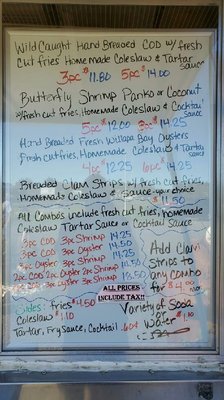 Wild Caught Hand Breaded COD w/ fresh
cut fries Homemade Coleslaw & Tartar
sauce
3pc $11.80 5pc $14.00
Butterfly Shrimp Panko or Coconut
w/fresh cut fries, Homemade Coleslaw & Cocktail
Sauce
5pc $12.00 8pc $14.25
Hand Breaded Fresh Willapa Bay Oysters
Fresh cut fries, Homemade Coleslaw & Tartar
sauce
4pc $12.25 6pc $14.25
Breaded Clam Strips w/ fresh cut fries,
Homemade Coleslaw & Sauce your choice
$11.50
All Combos include fresh cut fries, homemade
Coleslaw Tartar Sauce or Cocktail Sauce
2pc COD 3pc Shrimp 14.25
2pc COD 3pc Oyster 14.50
3pc Oyster 3pc Shrimp 14.25
2pc COD 2pc Oyster 2pc Shrimp
Add Clam
Strips to
any combo
for $4.00
ALL PRICES
INCLUDE TAX!!
Sides: fries $4.50
Coleslaw $1.10
Tartar, Fry Sauce, Cocktail .60¢
Variety of Soda
or
Water $1.10